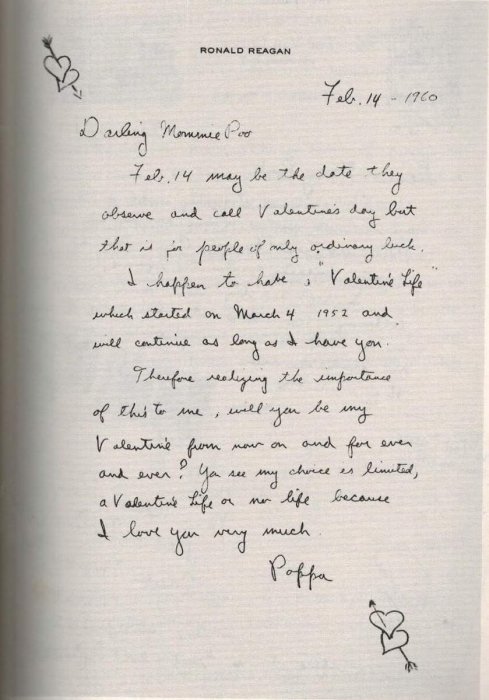 RONALD REAGAN
Feb. 14 - 1960
Darling Mommie Poo
Feb. 14 may be the date they
observe and call Valentine's day but
that is for people of only ordinary luck.
I happen to have a "Valentine Life"
which started on March 4 1952 and
will continue as long as I have you.
Therefore realizing the importance
of this to me, will you be my
Valentine from now on and for ever
and ever? You see my choice is limited,
a Valentine Life or no life because
I love you very much.
Poppa